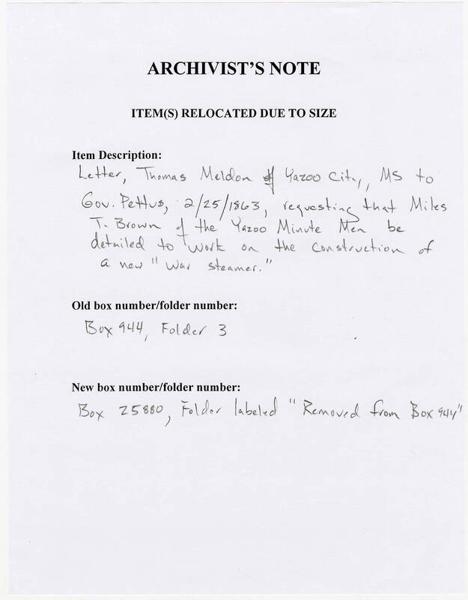 ARCHIVIST'S NOTE
ITEM(S) RELOCATED DUE TO SIZE
Item Description:
Letter, Thomas Meldon of Yazoo City, MS to
Gov. Pettus, 2/25/1863, requesting that Miles
T. Brown of the Yazoo Minute Men be
detailed to work on the construction of
a new "war steamer."
Old box number/folder number:
Box 944, Folder 3
New box number/folder number:
Box 25880, Folder labeled "Removed from Box 944"